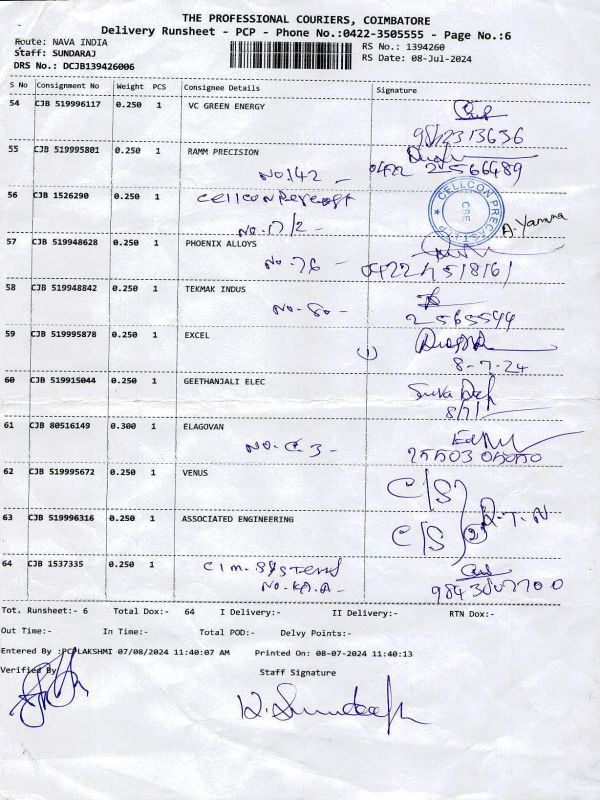 THE PROFESSIONAL COURIERS, COIMBATORE
Delivery Runsheet - PCP - Phone No.:0422-3505555 - Page No.:6
Route: NAVA INDIA
Staff: SUNDARAJ
DRS No.: DCJB139426006
RS No.: 1394260
RS Date: 08-Jul-2024
S No Consignment No Weight PCS Consignee Details Signature
54 CJB 519996117 0.250 1 VC GREEN ENERGY
55 CJB 519995801 0.250 1 RAMM PRECISION
NO.142 - 0422 2566489
56 CJB 1526290 0.250 1 Cellcon
NO. 17/2 -
CELLCON PRECAST
CBE
A. Yamuna
57 CJB 519948628 0.250 1 PHOENIX ALLOYS
NO. 76 -
58 CJB 519948842 0.250 1 TEKMAK INDUS
NO. 80 - 2565544
59 CJB 519995878 0.250 1 EXCEL
8-7-24
60 CJB 519915044 0.250 1 GEETHANJALI ELEC
8/7/
61 CJB 80516149 0.300 1 ELAGOVAN
62 CJB 519995672 0.250 1 VENUS
C/S
63 CJB 519996316 0.250 1 ASSOCIATED ENGINEERING
C/S (2) R.T.N
64 CJB 1537335 0.250 1 Cim. Systems
Tot. Runsheet:- 6 Total Dox:- 64 I Delivery:- II Delivery:- RTN Dox:-
Out Time:- In Time:- Total POD:- Delvy Points:-
Entered By :PCPLAKSHMI 07/08/2024 11:40:07 AM Printed On: 08-07-2024 11:40:13
Verified By Staff Signature